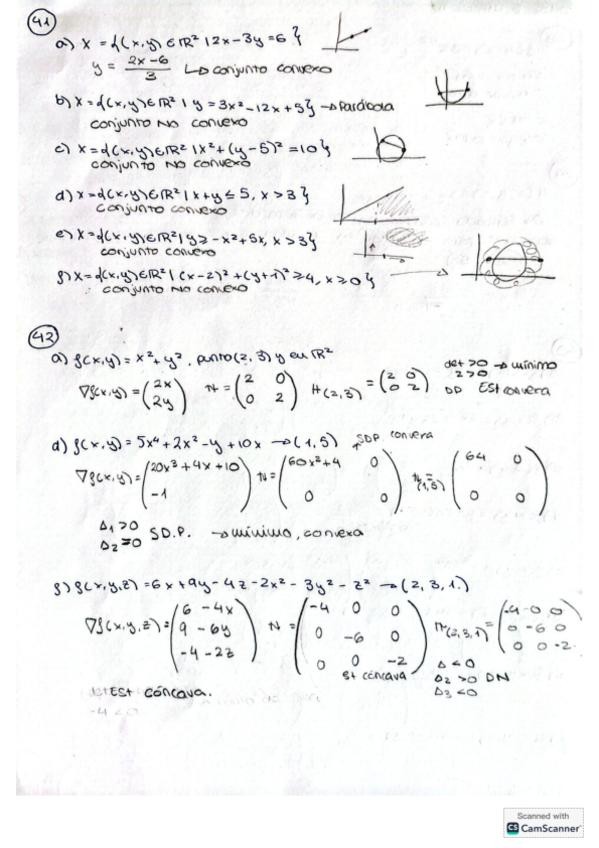 41
a) X = {(x,y) ∈ ℝ² | 2x-3y=6}
y = (2x-6)/3 ↳ conjunto convexo
b) X={(x,y)∈ℝ² | y = 3x²-12x+5} → Parábola
conjunto NO convexo
c) X={(x,y)∈ℝ² | x²+(y-5)²=10}
conjunto NO convexo
d) X={(x,y)∈ℝ² | x+y ≤ 5, x>3}
conjunto convexo
e) X={(x,y)∈ℝ² | y ≥ -x²+5x, x>3}
conjunto convexo
f) X={(x,y)∈ℝ² | (x-2)²+(y+1)² ≥ 4, x≥0} →
conjunto NO convexo
42
a) f(x,y) = x²+y², punto (2,3) y en ℝ²
∇f(x,y) = (2x 2y) H = (2 0 0 2) H(2,3) = (2 0 0 2) det >0 → mínimo
2>0
DP Est convexa
d) f(x,y) = 5x⁴+2x²-y+10x → (1,5) SDP convexa
∇f(x,y) = (20x³+4x+10 -1) H = (60x²+4 0 0 0) H(1,5) = (64 0 0 0)
Δ₁ >0
Δ₂ =0 S.D.P. → mínimo, convexa
f) f(x,y,z) = 6x+9y-4z-2x²-3y²-z² → (2,3,1)
∇f(x,y,z) = (6-4x 9-6y -4-2z) H = (-4 0 0 0 -6 0 0 0 -2) H(2,3,1) = (-4 0 0 0 -6 0 0 0 -2)
Est cóncava Δ <0
Δ₂ >0 DN
Δ₃ <0
Est cóncava.
-4<0
Scanned with
CS CamScanner